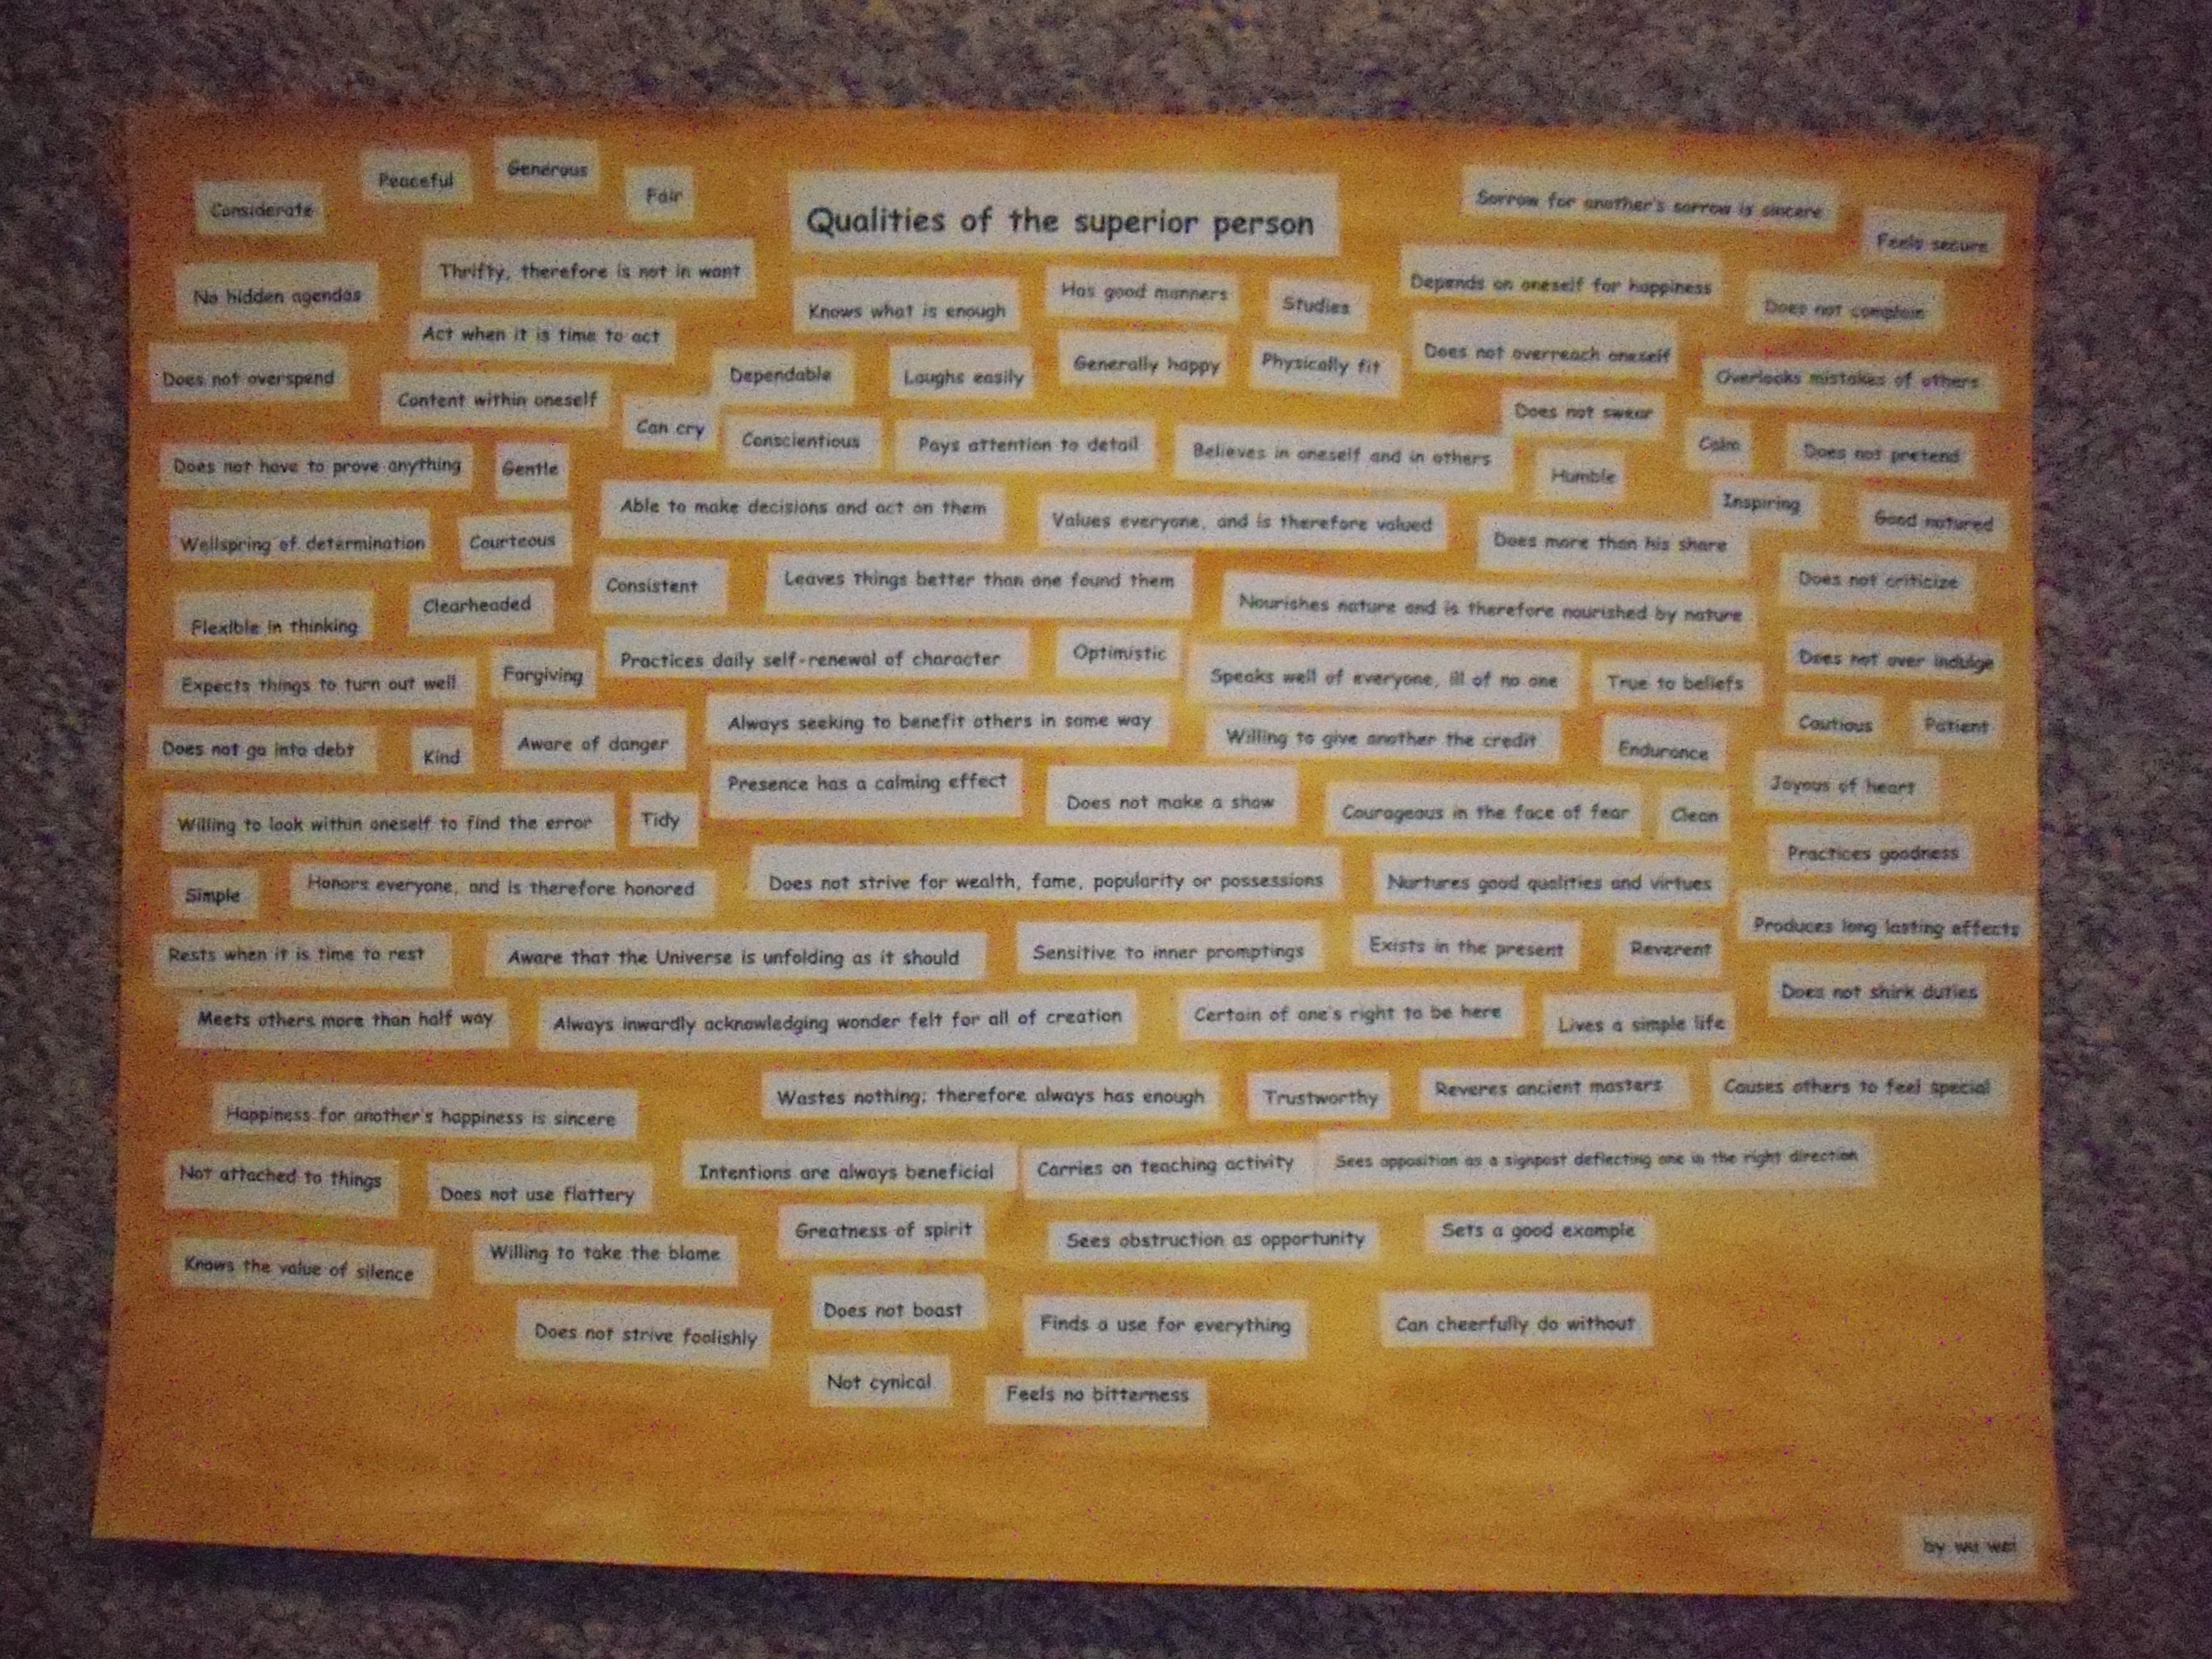 Qualities of the superior person
Considerate
Peaceful
Generous
Fair
Sorrow for another's sorrow is sincere
Feels secure
No hidden agendas
Thrifty, therefore is not in want
Knows what is enough
Has good manners
Studies
Depends on oneself for happiness
Does not complain
Act when it is time to act
Does not overspend
Content within oneself
Dependable
Laughs easily
Generally happy
Physically fit
Does not overreach oneself
Overlooks mistakes of others
Can cry
Conscientious
Pays attention to detail
Believes in oneself and in others
Does not swear
Calm
Does not pretend
Does not have to prove anything
Gentle
Humble
Inspiring
Good natured
Able to make decisions and act on them
Values everyone, and is therefore valued
Does more than his share
Wellspring of determination
Courteous
Consistent
Leaves things better than one found them
Nourishes nature and is therefore nourished by nature
Does not criticize
Flexible in thinking
Clearheaded
Practices daily self-renewal of character
Optimistic
Speaks well of everyone, ill of no one
True to beliefs
Does not over indulge
Expects things to turn out well
Forgiving
Always seeking to benefit others in some way
Willing to give another the credit
Endurance
Cautious
Patient
Does not go into debt
Kind
Aware of danger
Presence has a calming effect
Does not make a show
Courageous in the face of fear
Clean
Joyous of heart
Willing to look within oneself to find the error
Tidy
Practices goodness
Simple
Honors everyone, and is therefore honored
Does not strive for wealth, fame, popularity or possessions
Nurtures good qualities and virtues
Produces long lasting effects
Rests when it is time to rest
Aware that the Universe is unfolding as it should
Sensitive to inner promptings
Exists in the present
Reverent
Does not shirk duties
Meets others more than half way
Always inwardly acknowledging wonder felt for all of creation
Certain of one's right to be here
Lives a simple life
Happiness for another's happiness is sincere
Wastes nothing; therefore always has enough
Trustworthy
Reveres ancient masters
Causes others to feel special
Not attached to things
Does not use flattery
Intentions are always beneficial
Carries on teaching activity
Sees opposition as a signpost deflecting one in the right direction
Knows the value of silence
Willing to take the blame
Greatness of spirit
Sees obstruction as opportunity
Sets a good example
Does not strive foolishly
Does not boast
Finds a use for everything
Can cheerfully do without
Not cynical
Feels no bitterness
by wu wei